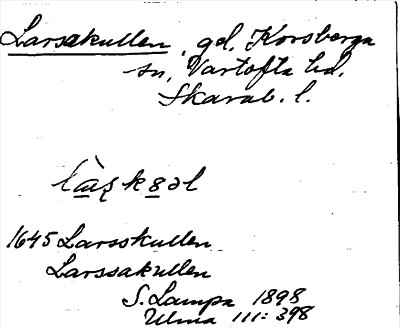 Larsakullen, gd, Korsberga
sn, Vartofta hd,
Skarab. l.
1645 Larsskullen
Larssakullen
S. Lampa 1898
Ulma III: 398